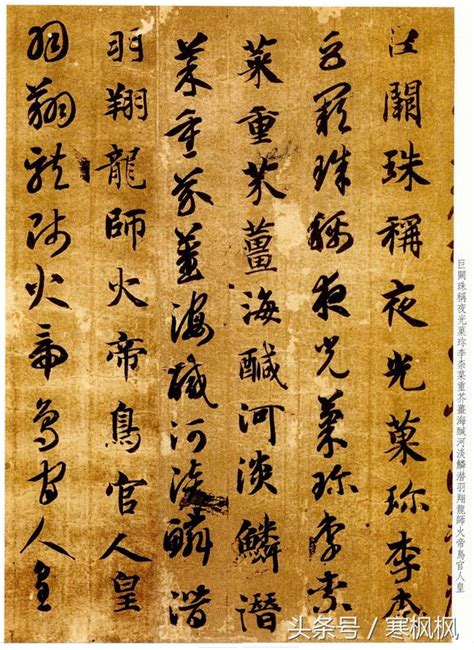 巨闕珠稱夜光菓珍李柰菜重芥薑海醎河淡鱗潛羽翔龍師火帝鳥官人皇
巨闕珠稱夜光菓珍李柰
巨闕珠稱夜光菓珍李柰
菜重芥薑海醎河淡鱗潛
菜重芥薑海醎河淡鱗潛
羽翔龍師火帝鳥官人皇
羽翔龍師火帝鳥官人皇
头条号 / 寒枫枫